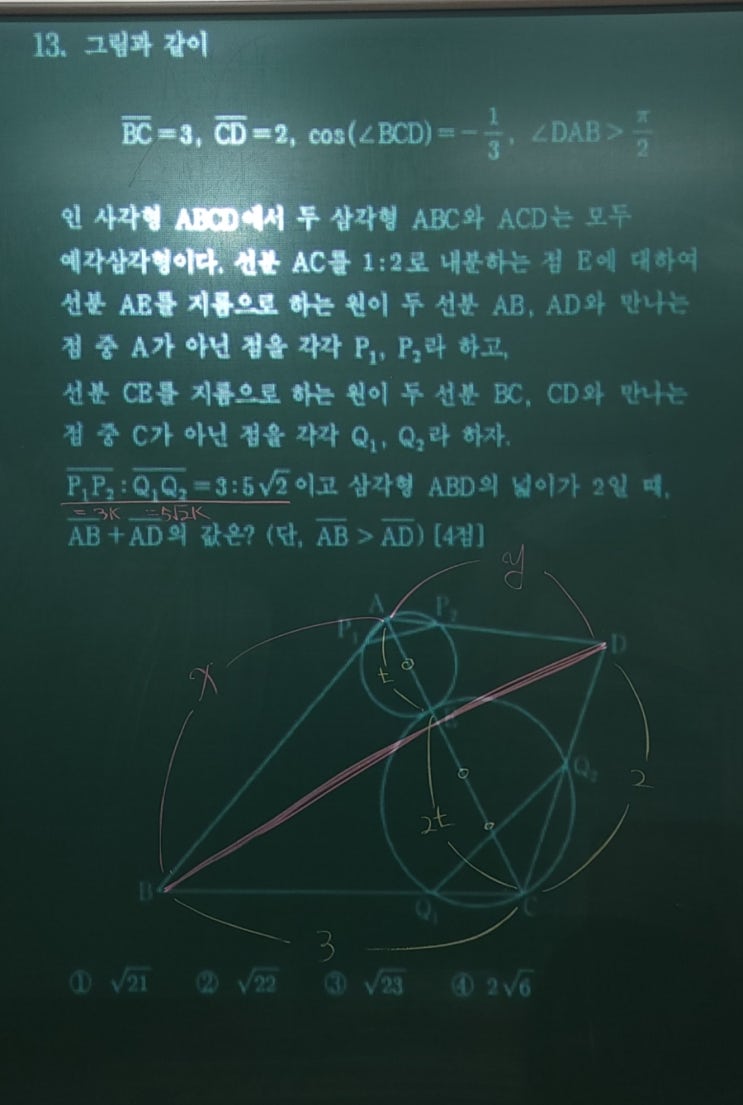 13. 그림과 같이
BC=3, CD=2, cos(∠BCD)=-1/3, ∠DAB>π/2
인 사각형 ABCD에서 두 삼각형 ABC와 ACD는 모두
예각삼각형이다. 선분 AC를 1:2로 내분하는 점 E에 대하여
선분 AE를 지름으로 하는 원이 두 선분 AB, AD와 만나는
점 중 A가 아닌 점을 각각 P₁, P₂라 하고,
선분 CE를 지름으로 하는 원이 두 선분 BC, CD와 만나는
점 중 C가 아닌 점을 각각 Q₁, Q₂라 하자.
P₁P₂:Q₁Q₂=3:5√2이고 삼각형 ABD의 넓이가 2일 때,
=3K =5√2K
AB+AD의 값은? (단, AB>AD) [4점]
y
A P₂
P₁ D
x t
E
2t Q₂ 2
B Q₁ C
3
① √21 ② √22 ③ √23 ④ 2√6